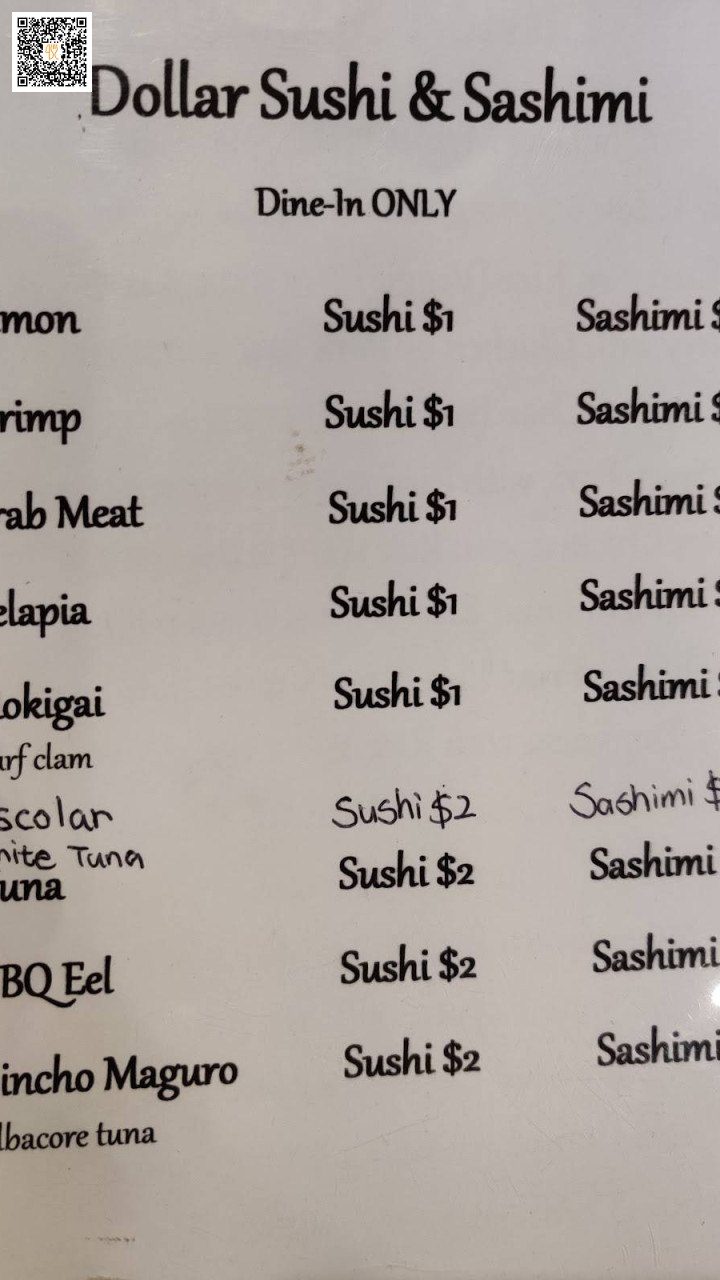 Dollar Sushi & Sashimi
Dine-In ONLY
mon Sushi $1 Sashimi $
rimp Sushi $1 Sashimi $
rab Meat Sushi $1 Sashimi $
elapia Sushi $1 Sashimi $
okigai Sushi $1 Sashimi
urf clam
scolar Sushi $2 Sashimi $
hite Tuna
una Sushi $2 Sashimi
BQ Eel Sushi $2 Sashimi
incho Maguro Sushi $2 Sashimi
lbacore tuna